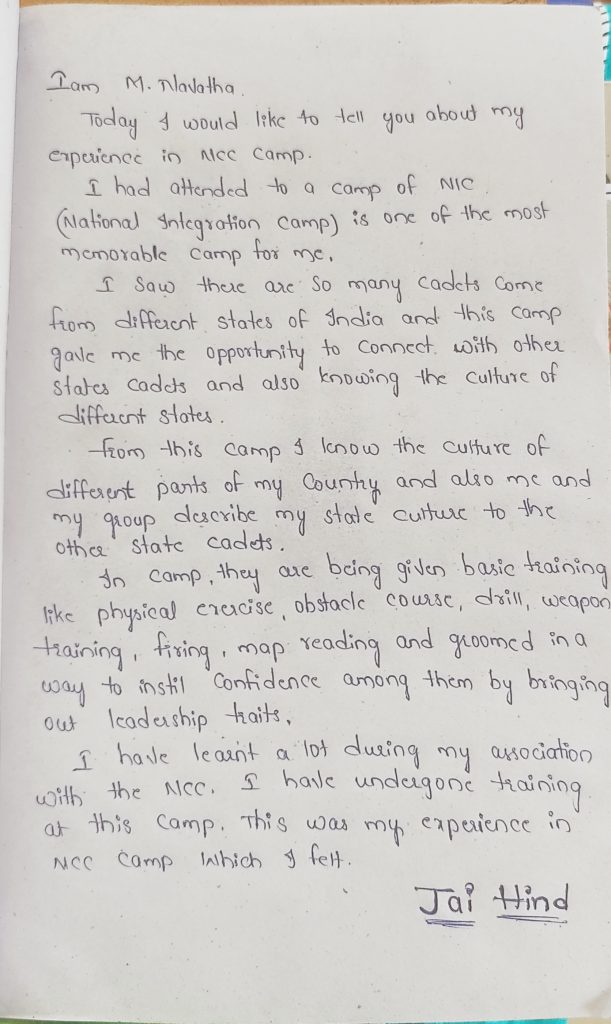 I am M. Navatha.
Today I would like to tell you about my
experience in NCC camp.
I had attended to a camp of NIC
(National Integration camp) is one of the most
memorable camp for me.
I saw there are so many cadets come
from different states of India and this camp
gave me the opportunity to connect with other
states cadets and also knowing the culture of
different states.
from this camp I know the culture of
different parts of my Country and also me and
my group describe my state culture to the
other state cadets.
In camp, they are being given basic training
like physical exercise, obstacle course, drill, weapon
training, firing, map reading and groomed in a
way to instil Confidence among them by bringing
out leadership traits.
I have learnt a lot during my association
with the NCC. I have undergone training
at this camp. This was my experience in
NCC Camp Which I felt.
Jai Hind